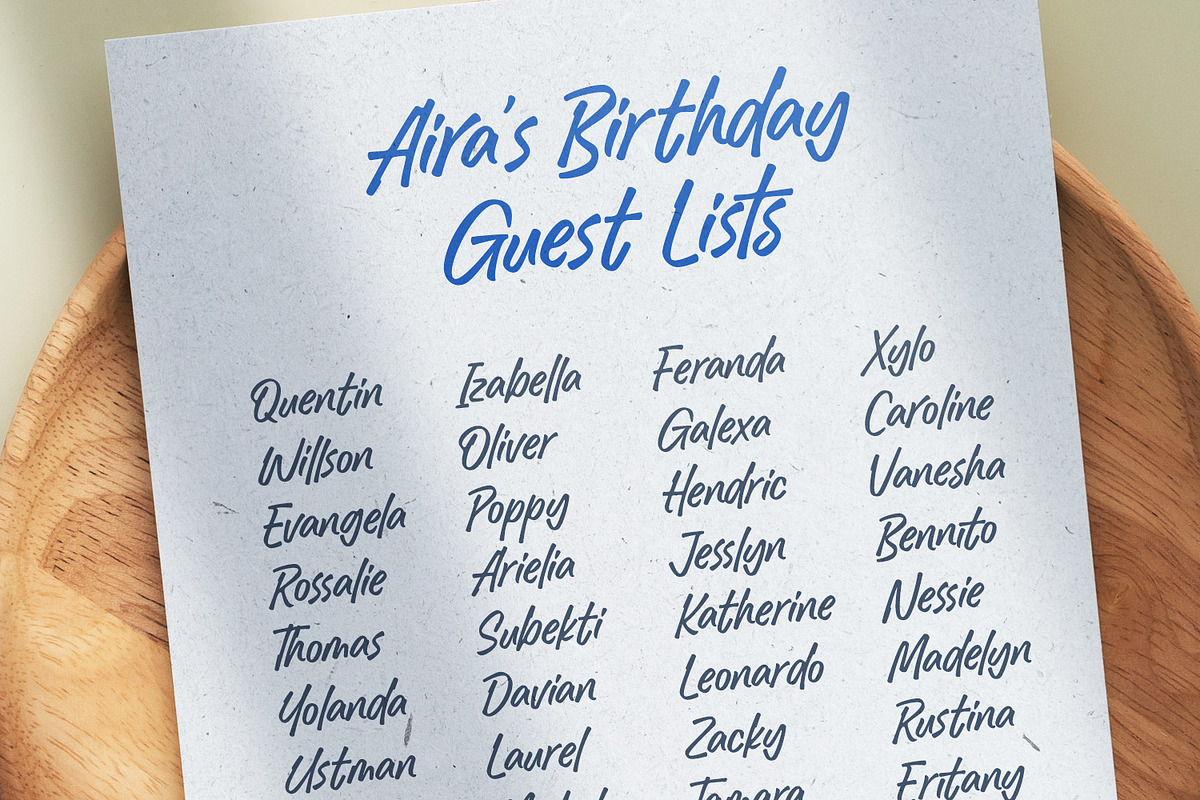 Aira's Birthday
Guest Lists
Quentin
Willson
Evangela
Rossalie
Thomas
Yolanda
Ustman
Izabella
Oliver
Poppy
Arielia
Subekti
Davian
Laurel
Feranda
Galexa
Hendric
Jesslyn
Katherine
Leonardo
Zacky
Tamara
Xylo
Caroline
Vanesha
Bennito
Nessie
Madelyn
Rustina
Fritany